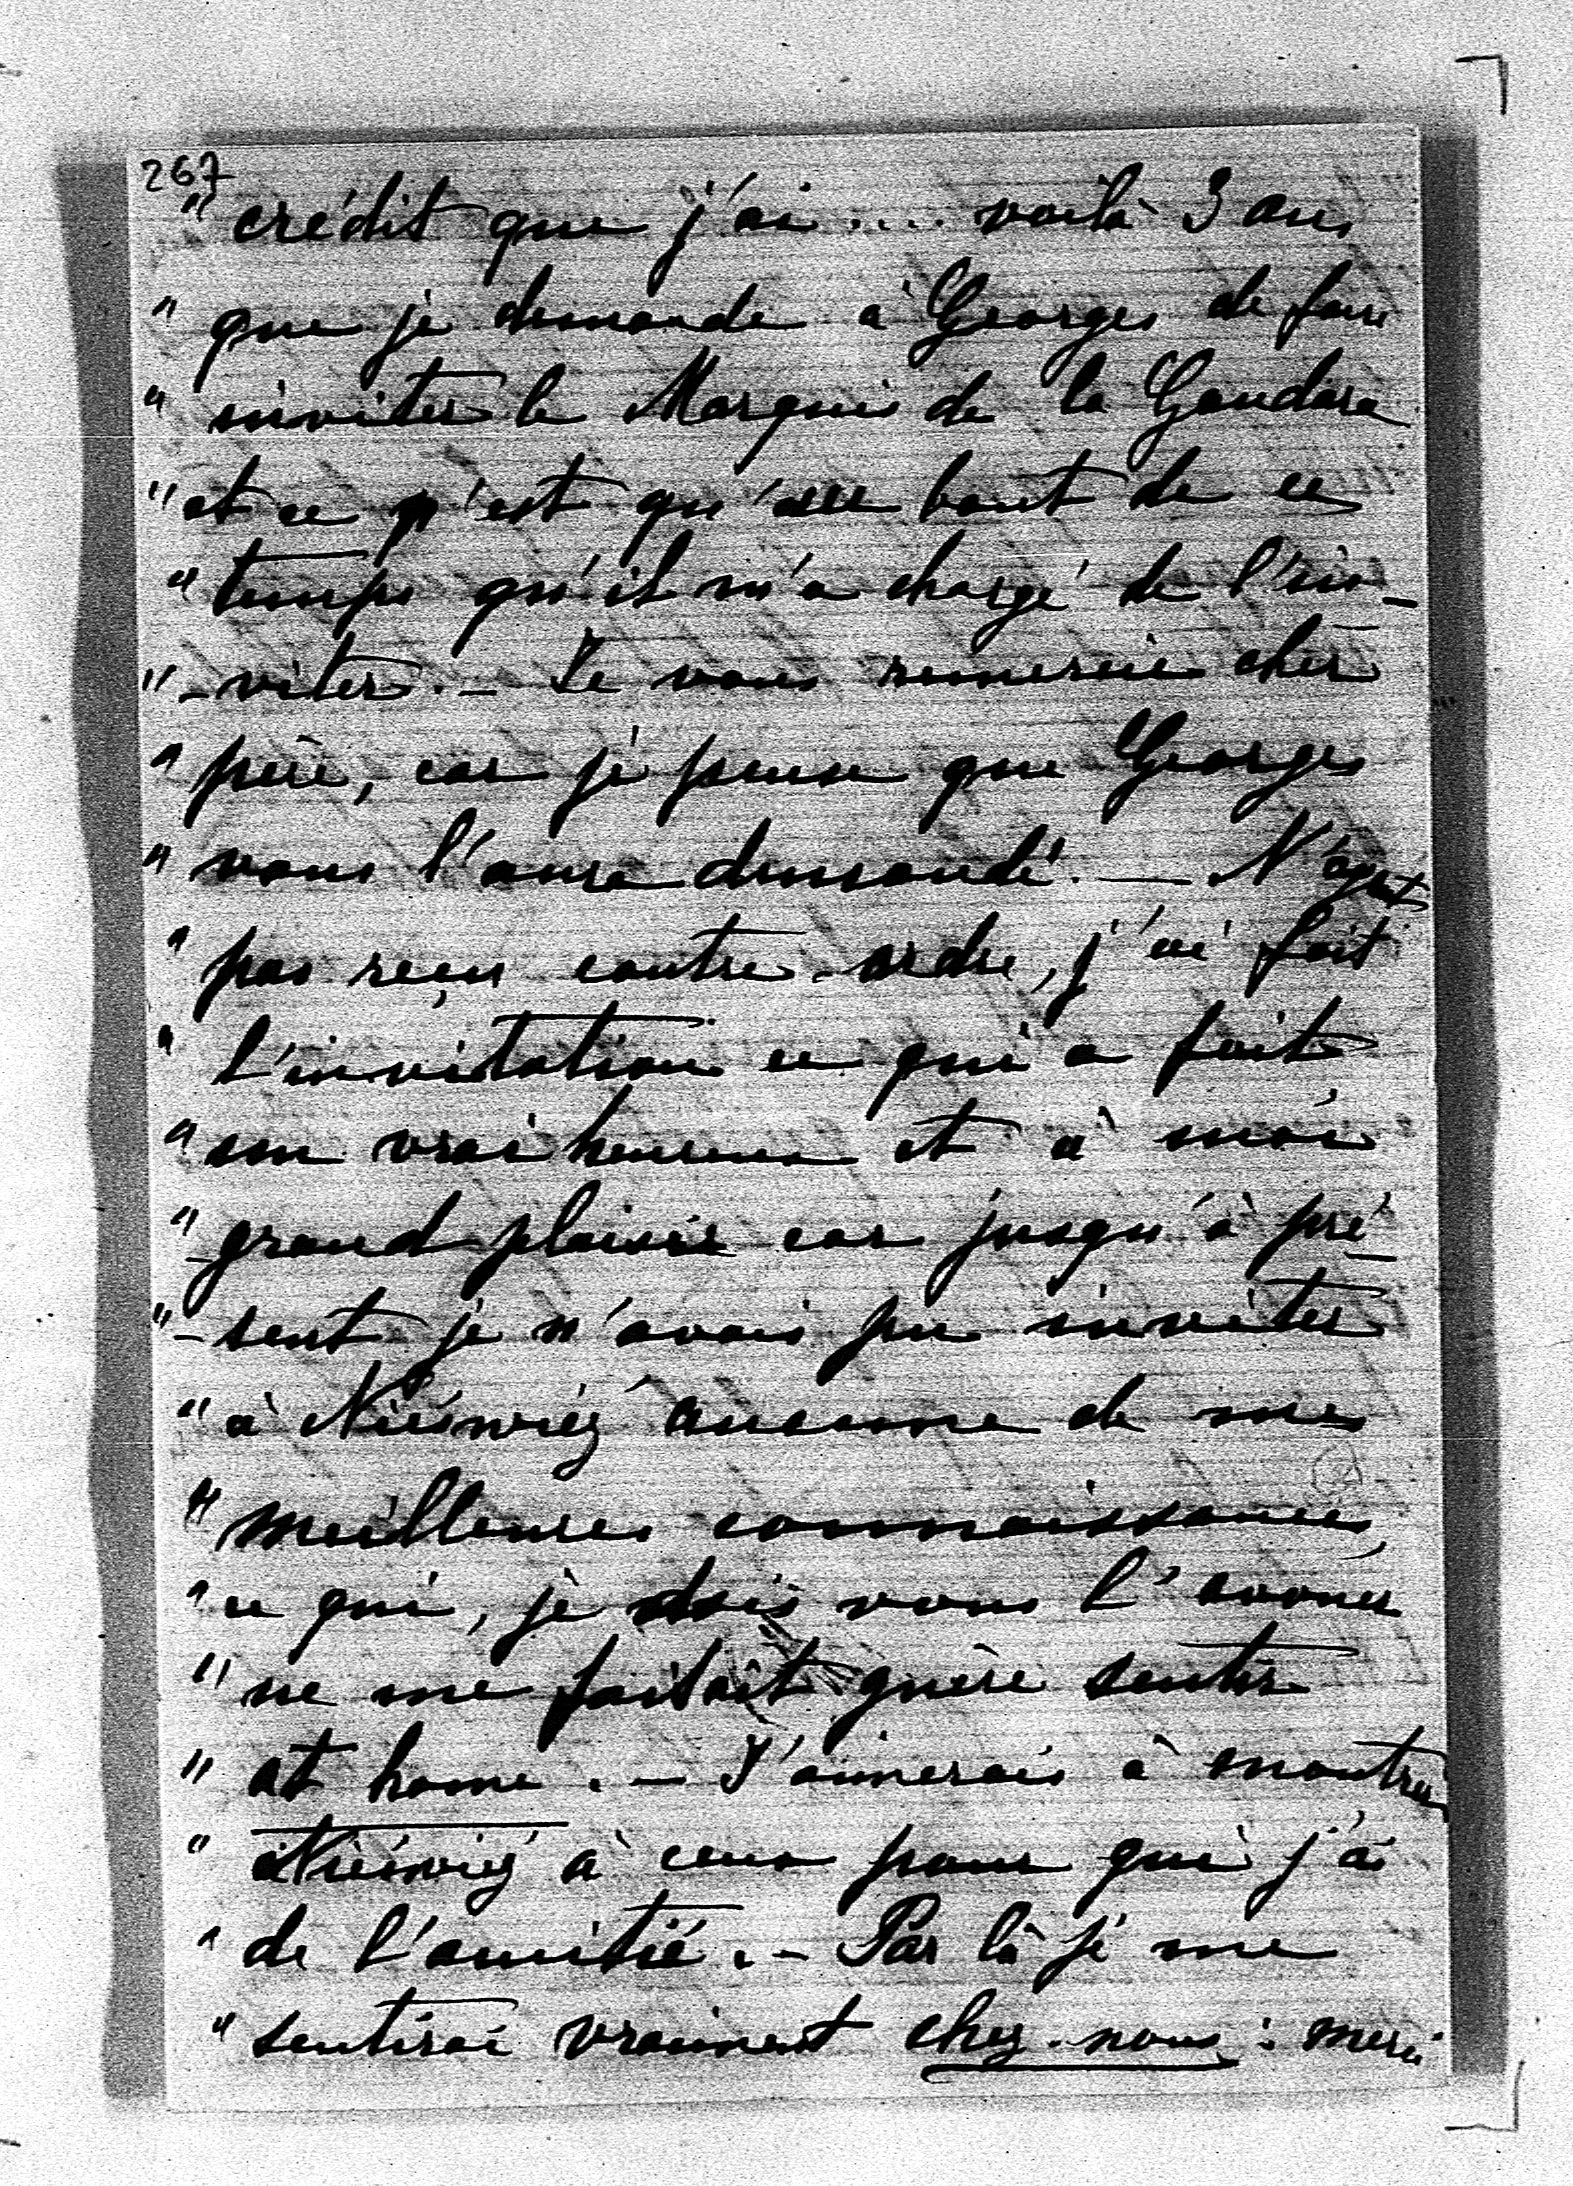 267
" crédit que j'ai .... voilà 3 ans
" que je demande à Georges de faire
" inviter le Marquis de la Gandara
" et ce n'est qu'au bout de ce
" temps qu'il m'a chargé de l'in-
" -viter. - Je vous remercie cher
" père, car je pense que Georges
" vous l'aura demandé. — N'ayant
" pas reçu contre-ordre, j'ai fait
" l'invitation ce qui a fait
" un vrai heureux et à moi
" grand plaisir car jusqu'à pré-
" -sent je n'avais pu inviter
" à Nieśwież aucune de mes
" meilleures connaissances,
" ce qui, je dois vous l'avouer
" ne me faisait guère sentir
" at home. - J'aimerais à montrer
" Nieśwież à ceux pour qui j'ai
" de l'amitié. - Par là je me
" sentirai vraiment chez-nous : merci